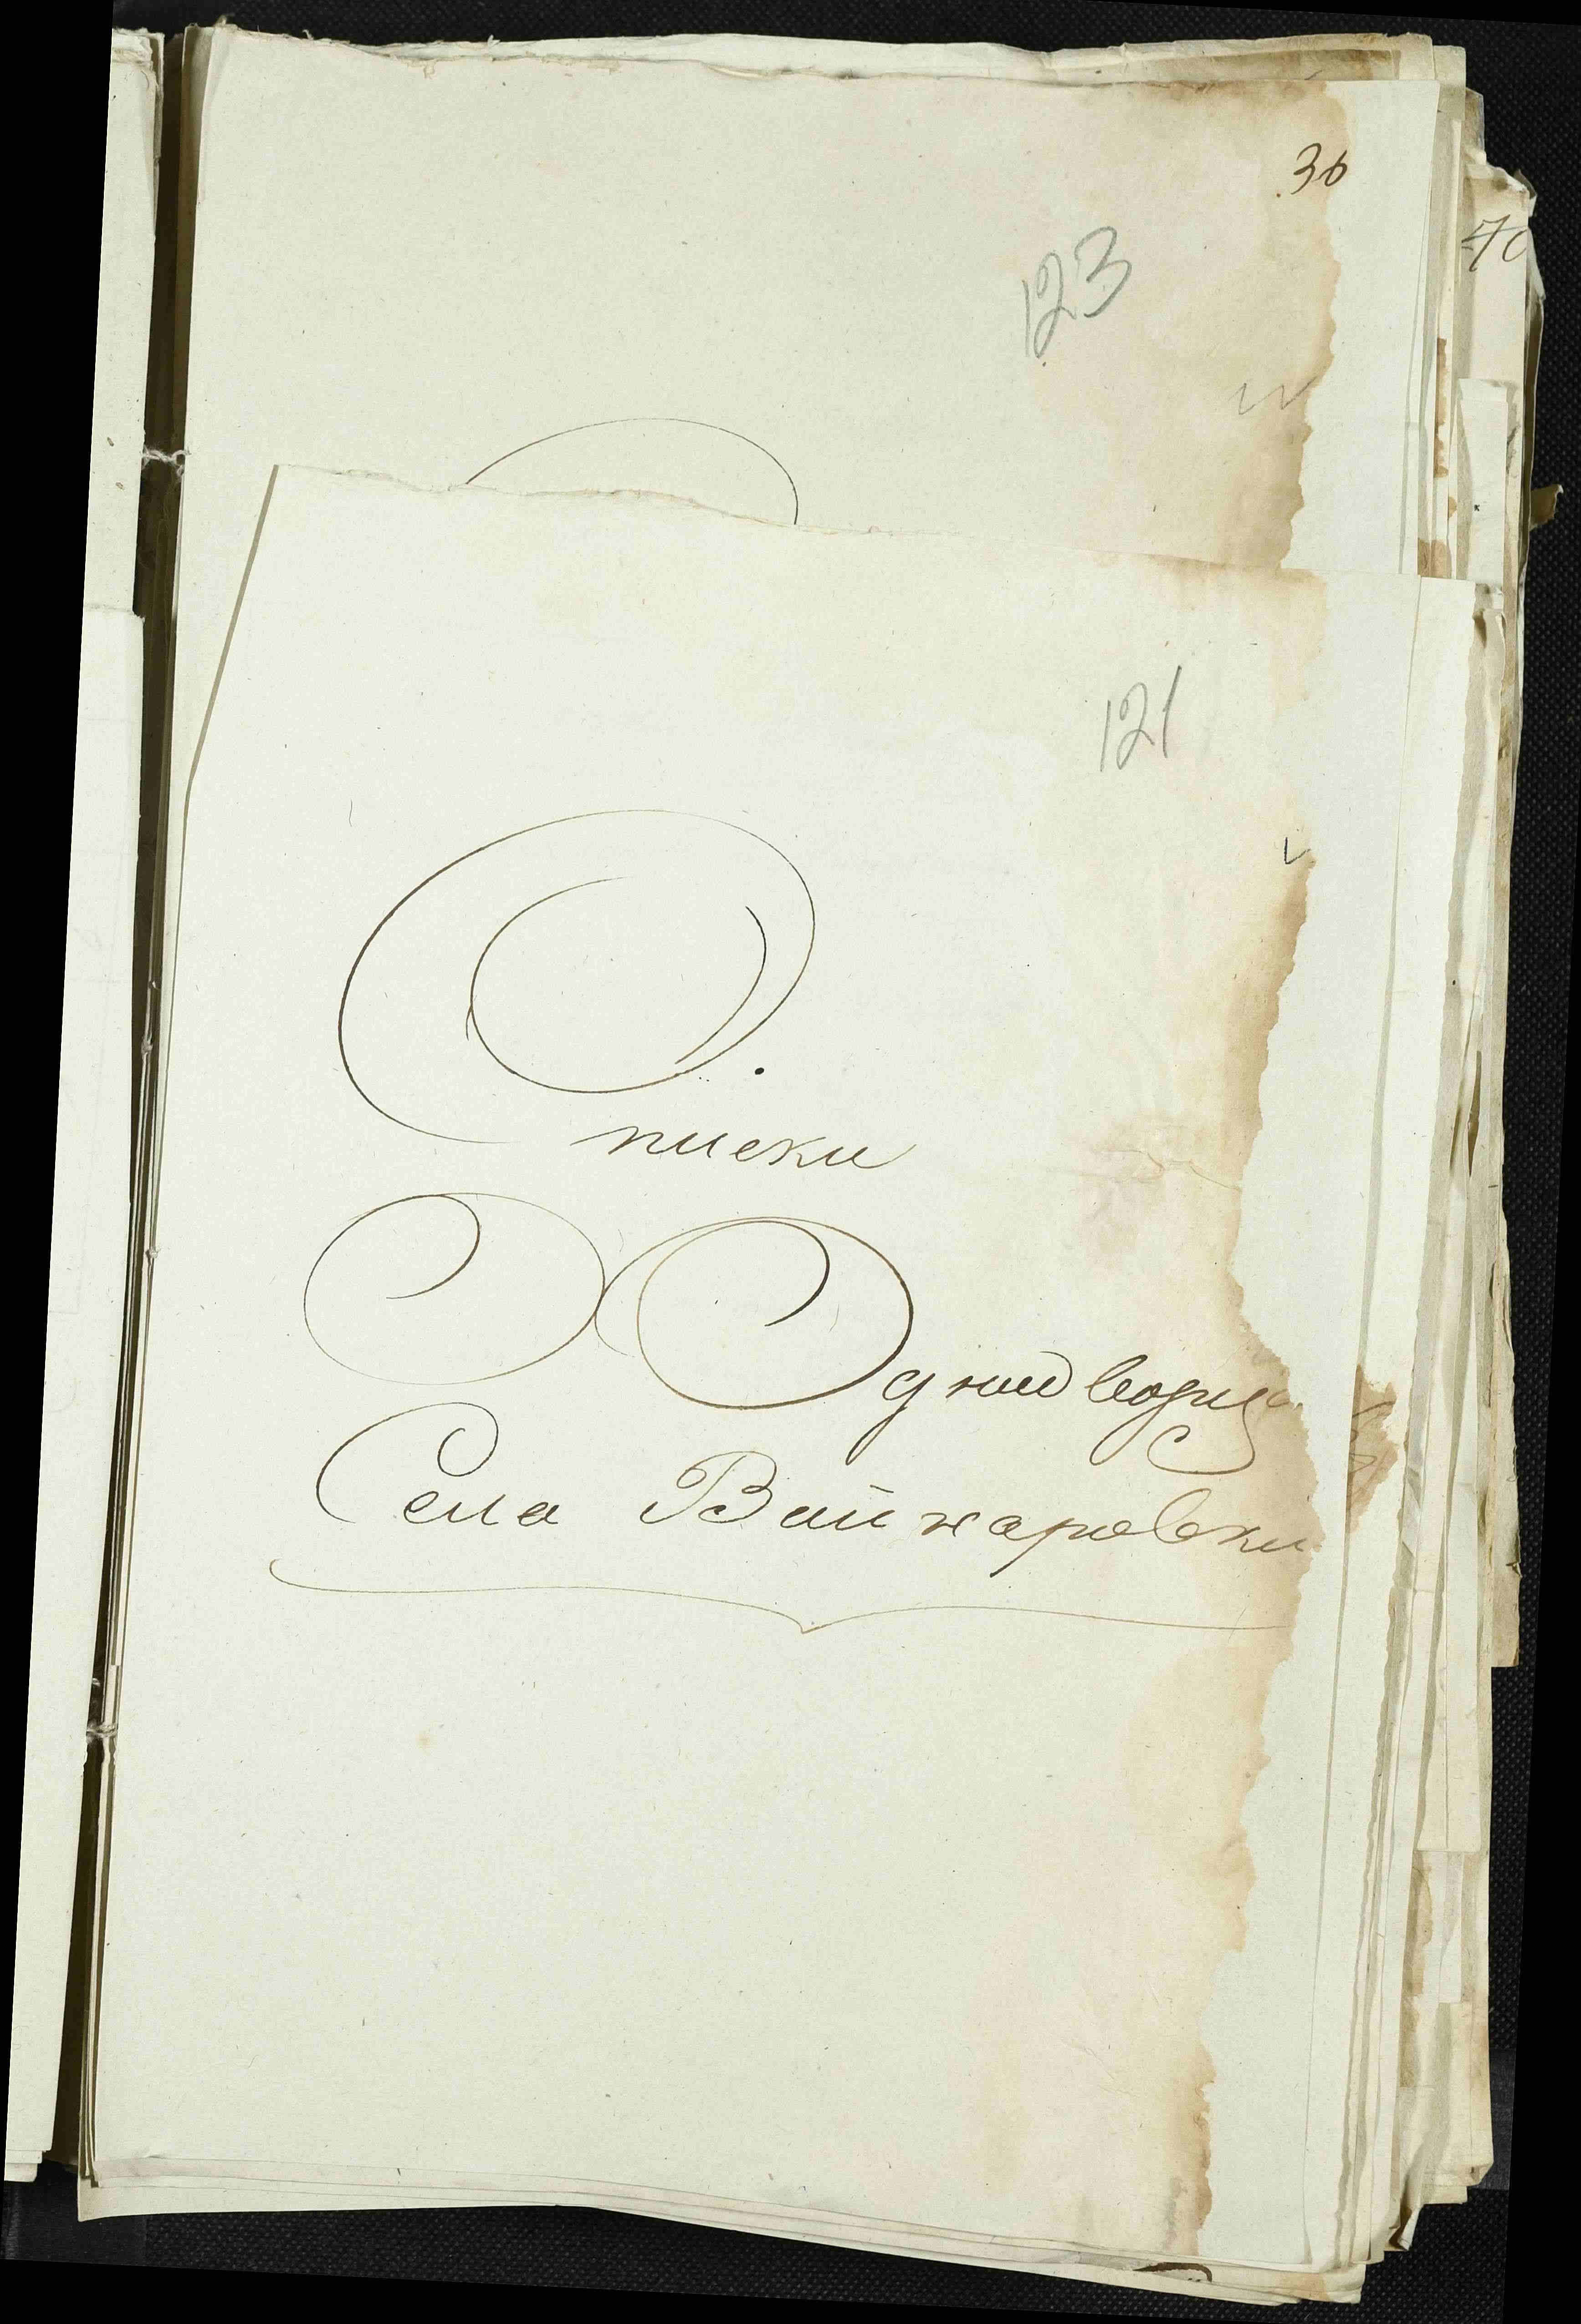 36
40
123
121
Списки
Однодворца
Села Вайнаровки